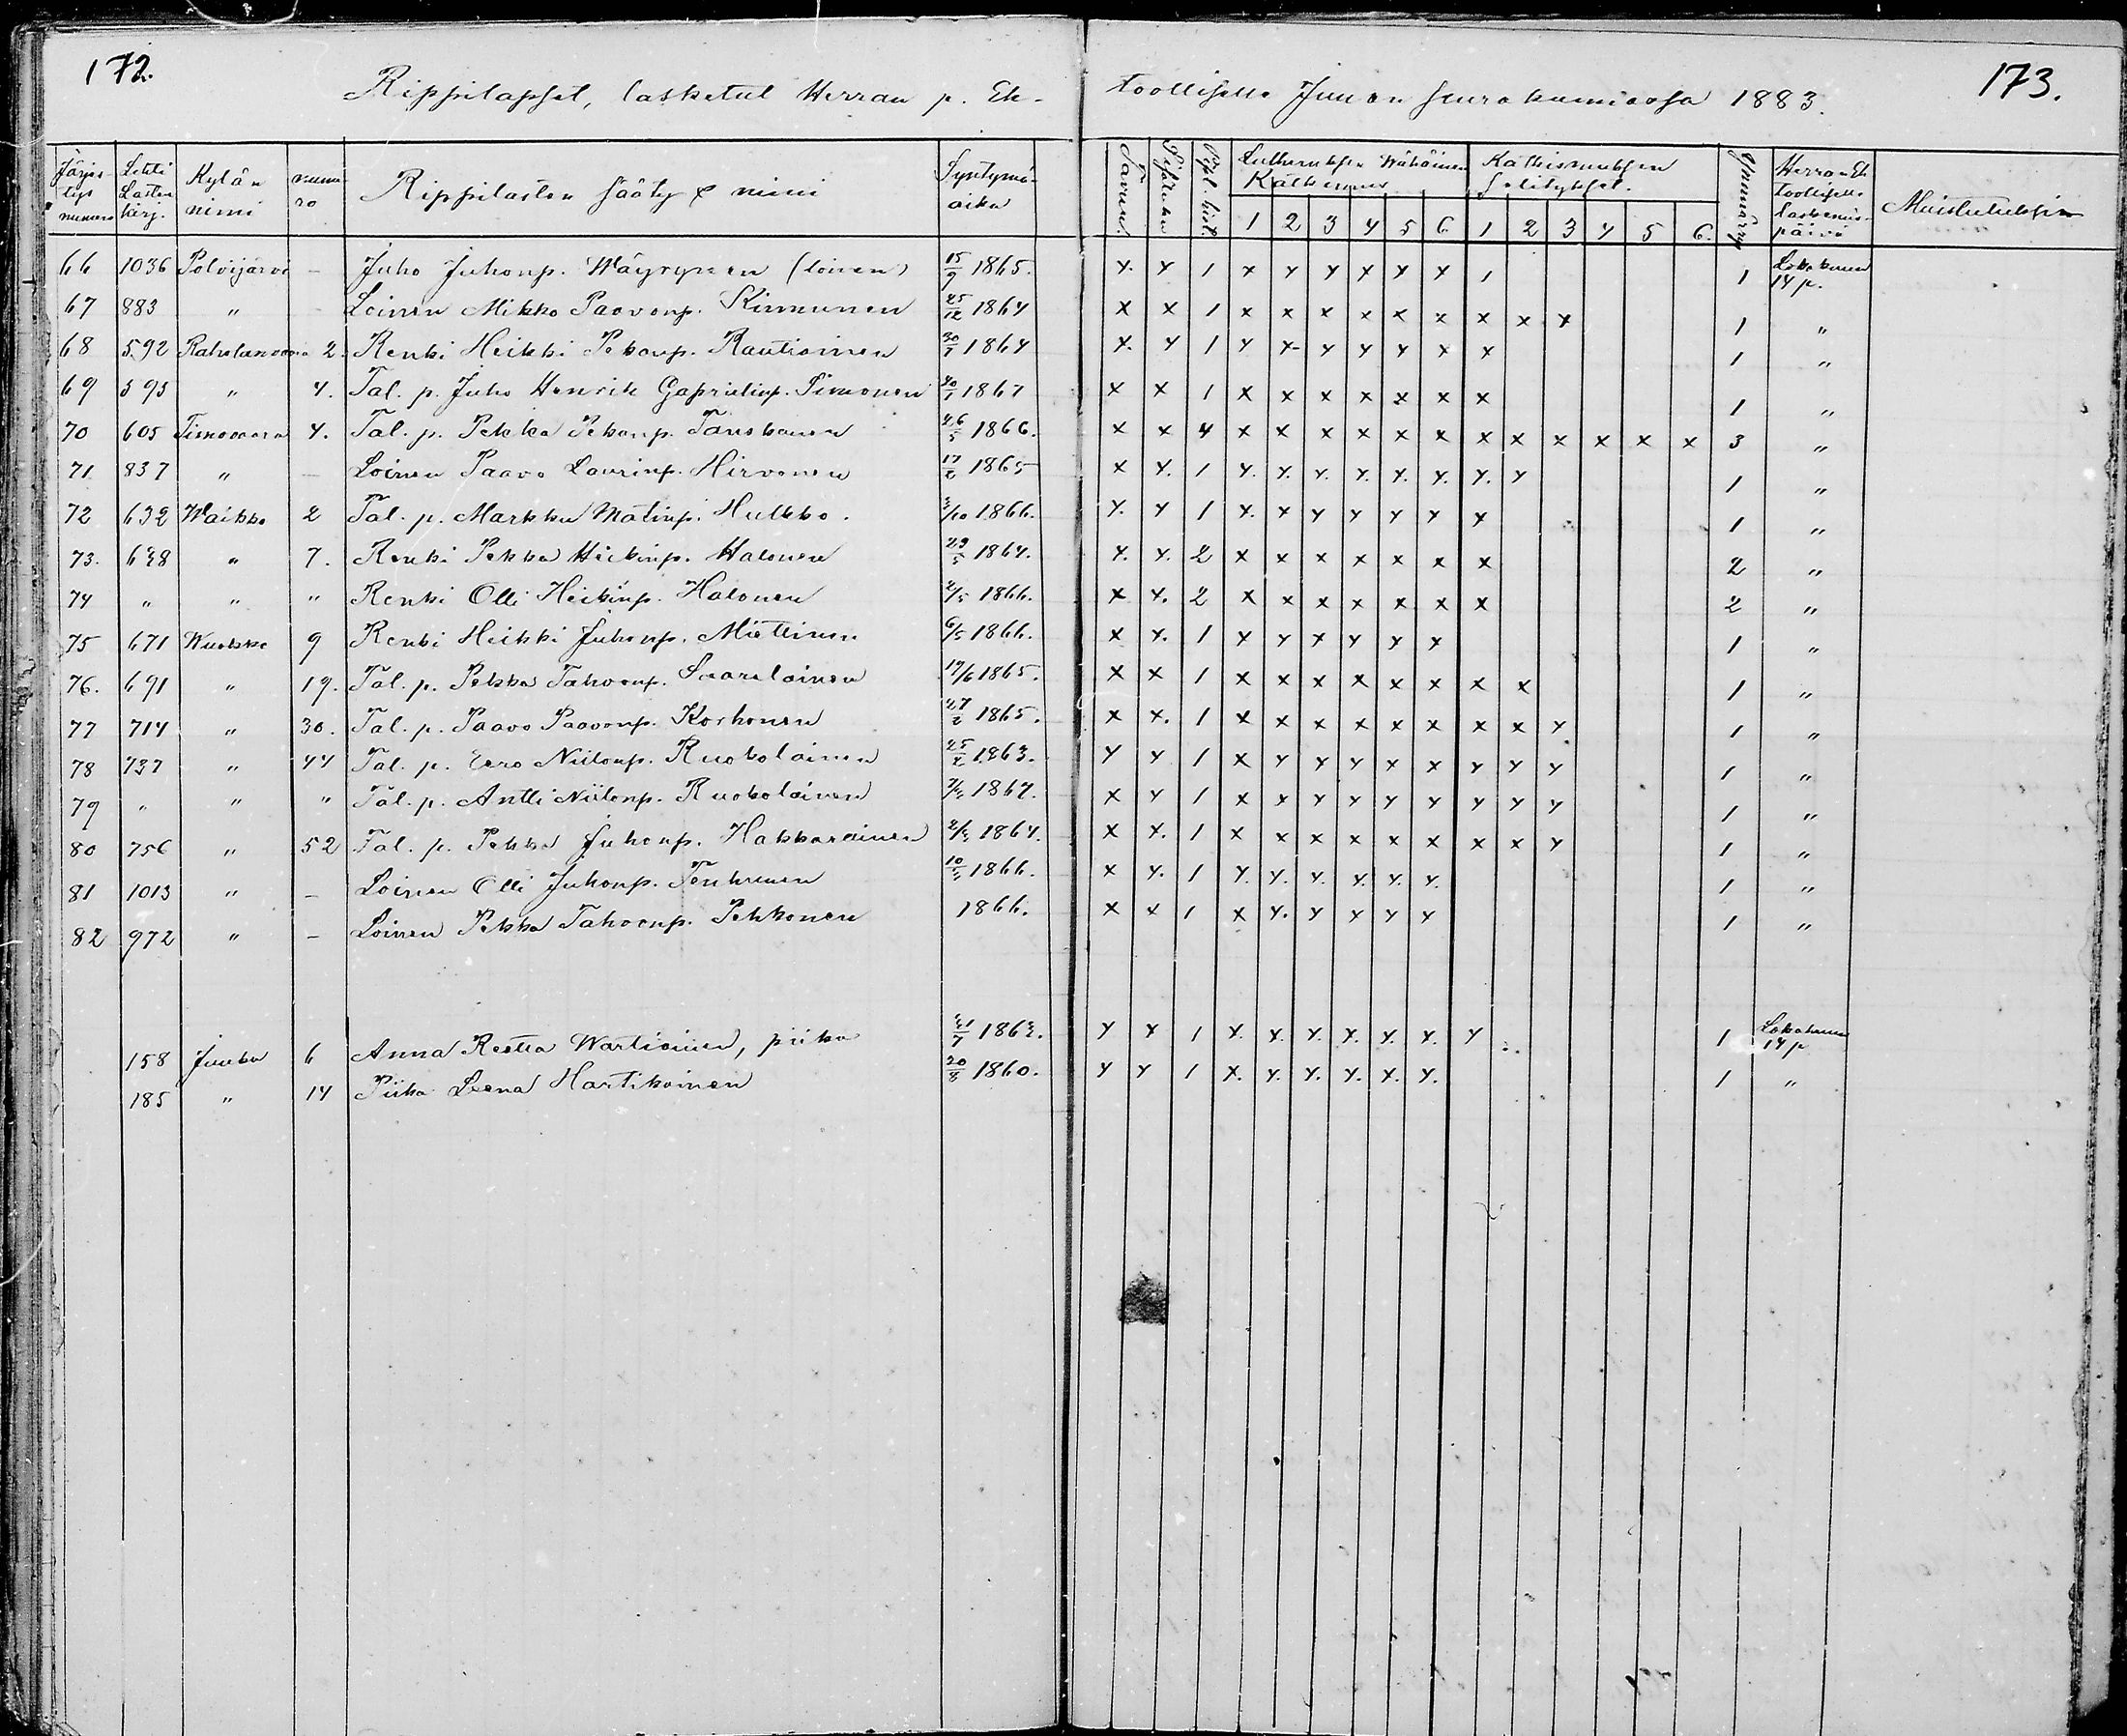 172.
Rippilapset, lasketut Herran p. Eh-
toolliselle Juuan seurakunnassa 1883.
173.
Järjes- tys numero | Lehti Lasten kirj. | Kylän nimi | nume- ro | Rippilasten sääty & nimi | Syntymä- aika | Lutheruksen Wähäinen Katkismus 1 2 3 4 5 6 | Katkismuksen selitykset. 1 2 3 4 5 6. | Ymmärrys | Herran Eh. toolliselle laskemis- päivä | Muistutuksia
66 1036 Polvijärvi – Juho Juhonp. Wäyrynen (loinen) 15/9 1865. x. x 1 x x x x x x 1 1 Lokakuun 14 p.
67 883 " – Loinen Mikko Paavonp. Kinnunen 25/12 1864 x x 1 x x x x x x x x x 1 "
68 592 2. Renki Heikki Pekanp. Rautiainen 30/7 1864 x. x 1 x x x x x x x 1 "
69 595 " 4. Tal. p. Juho Henrik Simonen 1867 x x 1 x x x x x x x 1 "
70 605 Timovaara 4. Tal. p. Pekka Pekanp. Tanskanen 26/5 1866. x x 4 x x x x x x x x x x x x 3 "
71 837 " – Loinen Paavo Laurinp. Hirvonen 17/2 1865 x x. 1 x. x. x. x. x. x. x. x 1 "
72 632 Waikko 2 Tal. p. Markku Matinp. Hulkko. 3/10 1866. x. x 1 x. x x x x x x 1 "
73. 638 " 7. Renki Pekka Heikinp. Halonen 29/5 1864. x. x. 2 x x x x x x x 2 "
74 " " " Renki Olli Heikinp. Halonen 2/5 1866. x x. 2 x x x x x x x 2 "
75 671 Wuokko 9 Renki Heikki Juhonp. Miettinen 6/5 1866. x x. 1 x x x x x x 1 "
76. 691 " 19. Tal. p. Pekka Tahvonp. Saarelainen 17/6 1865. x x 1 x x x x x x x x 1 "
77 714 " 30. Tal. p. Paavo Paavonp. Korhonen 27/2 1865. x x. 1 x x x x x x x x x 1 "
78 737 " 44 Tal. p. Eero Niilonp. Ruokolainen 25/2 1863. x x 1 x x x x x x x x x 1 "
79 " " " Tal. p. Antti Niilonp. Ruokolainen 1867. x x 1 x x x x x x x x x 1 "
80 756 " 52 Tal. p. Pekka Juhonp. Hakkarainen 1864. x x. 1 x x x x x x x x x 1 "
81 1013 " – Loinen Olli Juhonp. 1866. x x. 1 x. x. x. x. x. x. 1 "
82 972 " – Loinen Pekka Tahvonp. Pekkonen 1866. x x 1 x x. x x x x 1 "
158 Juuka 6 Anna Reetta Wartiainen, piika 21/7 1863. x x 1 x. x. x. x. x. x. x 1 Lokakuun 14 p
185 " 14 Piika Leena Hartikainen 20/8 1860. x x 1 x. x. x. x. x. x. 1 "